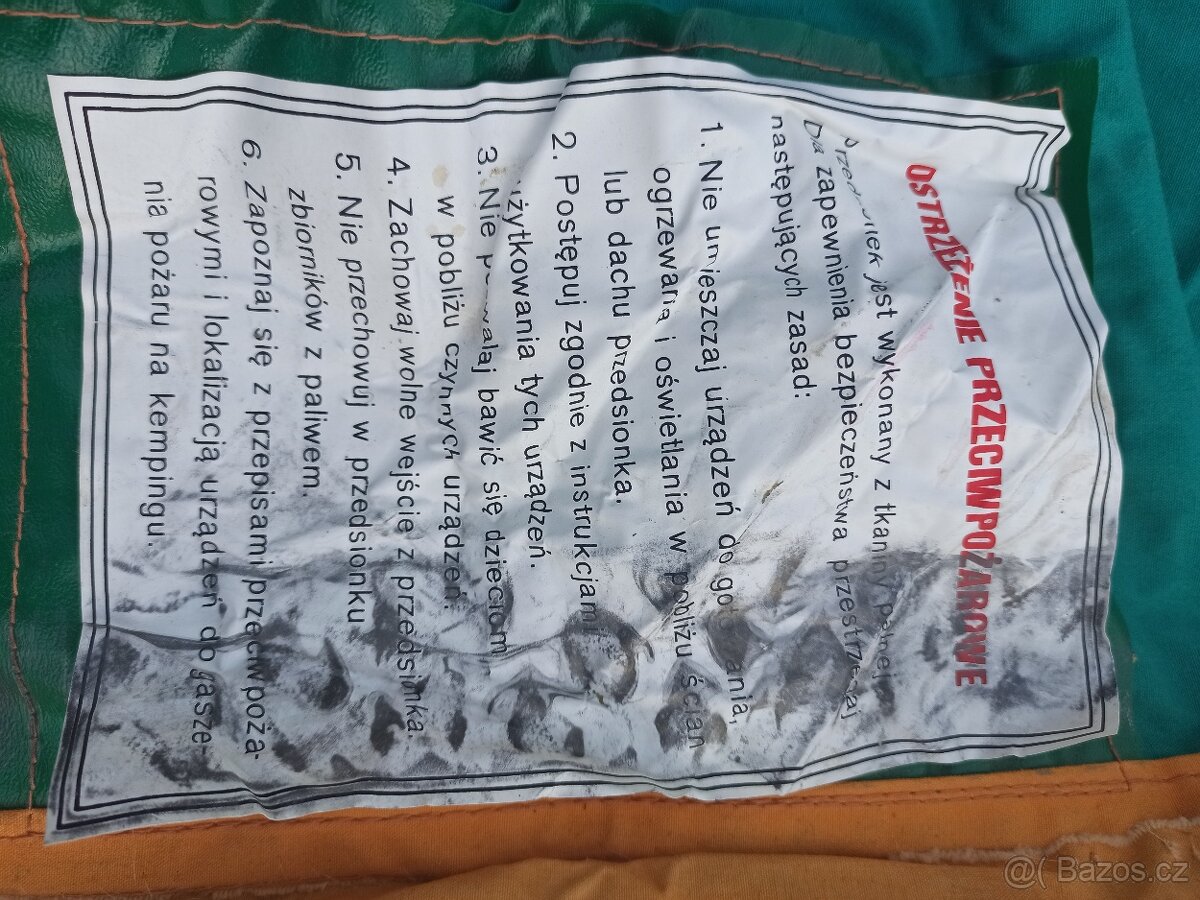 OSTRZEŻENIE PRZECIWPOŻAROWE
Przedsionek jest wykonany z tkaniny palnej.
Dla zapewnienia bezpieczeństwa przestrzegaj
następujących zasad:
1. Nie umieszczaj urządzeń do gotowania,
ogrzewania i oświetlania w pobliżu ścian
lub dachu przedsionka.
2. Postępuj zgodnie z instrukcjami
użytkowania tych urządzeń.
3. Nie pozwalaj bawić się dzieciom
w pobliżu czynnych urządzeń.
4. Zachowaj wolne wejście z przedsionka.
5. Nie przechowuj w przedsionku
zbiorników z paliwem.
6. Zapoznaj się z przepisami przeciwpoża-
rowymi i lokalizacją urządzeń do gasze-
nia pożaru na kempingu.
@( Bazos.cz